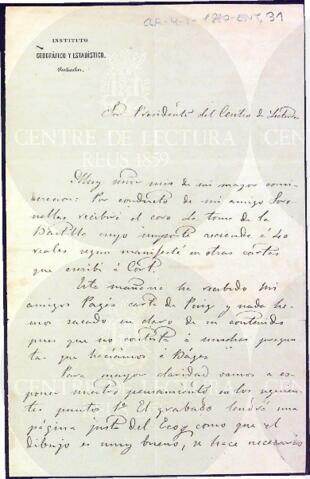 CLR-4-1-1880-ENT, 31
INSTITUTO
GEOGRÁFICO Y ESTADÍSTICO.
Particular.
Sor Presidente del Centro de Lectura
CENTRE DE LECTURA
REUS 1859
Muy señor mio de mi mayor consi-
deracion: Por conducto de mi amigo
recibirá el coro la toma de la
Bastilla cuyo importe asciende á 40
reales segun manifesté en otras cartas
que escribí á Cort.
Esta mañana he recibido
amigos Pagés carta de Puig y nada he-
mos sacado en claro de su contenido
pues que no contesta á muchas pregun-
tas que haciamos á Bages
Para mayor claridad vamos a es-
poner nuestro pensamiento en los siguien-
tes puntos 1º El grabado tendrá una
página justa del Eco y como que el
dibujo es muy bueno, se hace necesario